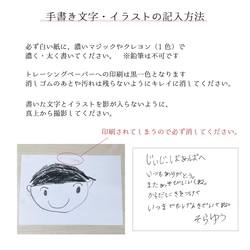 手書き文字・イラストの記入方法
必ず白い紙に、濃いマジックやクレヨン（１色）で
濃く・太く書いてください。　※鉛筆は不可です
トレーシングペーパーへの印刷は黒一色となります
消しゴムのあとや汚れは残らないようにキレイに消してください。
書いた文字とイラストを影が入らないように、
真上から撮影してください。
印刷されてしまうので必ず消してください。
じいじ、ばあばへ
いつもありがとう。
またあそびにいくね。
からだにきをつけて
いつまでもげんきでいてね
そらゆう